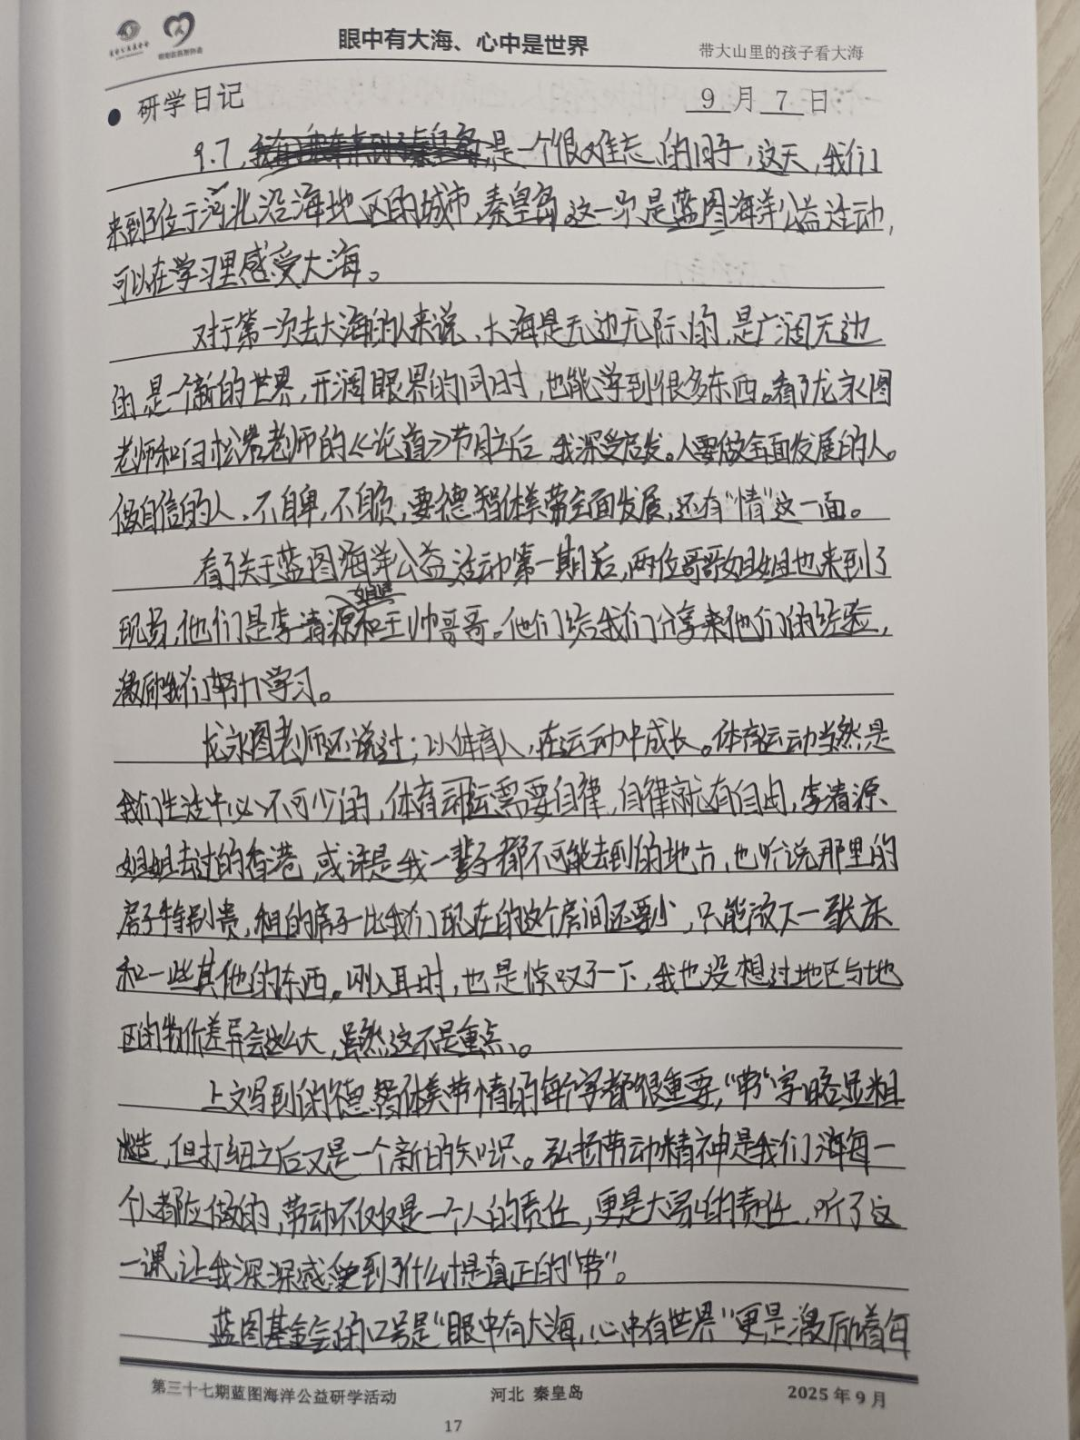 眼中有大海、心中是世界
带大山里的孩子看大海
研学日记
9月7日
9.7,是一个很难忘的日子,这天,我们
来到了位于河北沿海地区的城市,秦皇岛。这一次是蓝图海洋公益活动,
可以在学习里感受大海。
对于第一次去大海的人来说,大海是无边无际的,是广阔无边
的,是一个新的世界,开阔眼界的同时,也能学到很多东西。看了龙永图
老师和白松岩老师的《论道》节目后,我深受启发。人要做全面发展的人。
做自信的人,不自卑,不自负,要德智体美劳全面发展,还有“情”这一面。
看了关于蓝图海洋公益活动第一期后,两位哥哥姐姐也来到了
现场,他们是李清源姐姐和王帅哥哥。他们给我们分享来他们的经验,
激励我们努力学习。
龙永图老师还说过;以体育人,在运动中成长。体育运动当然是
我们生活中必不可少的,体育运需要自律,自律就有自由,李清源
姐姐去过的香港,或许是我一辈子都不可能去到的地方,也听说那里的
房子特别贵,租的房子比我们现在的这个房间还要小,只能放下一张床
和一些其他的东西。刚入耳时,也是惊叹了一下,我也没想过地区与地
区的物价差异会这么大,虽然这不是重点。
上文写到的德智体美劳情的每个字都很重要,“劳”字略显粗
糙,但打细之后又是一个新的知识。弘扬劳动精神是我们每一
个人都应做的,劳动不仅仅是一个人的责任,更是大家的责任,听了这
一课,让我深深感受到了什么才是真正的“劳”。
蓝图基金会的口号是“眼中有大海,心中有世界”更是激励着每
第三十七期蓝图海洋公益研学活动
河北 秦皇岛
2025年9月
17